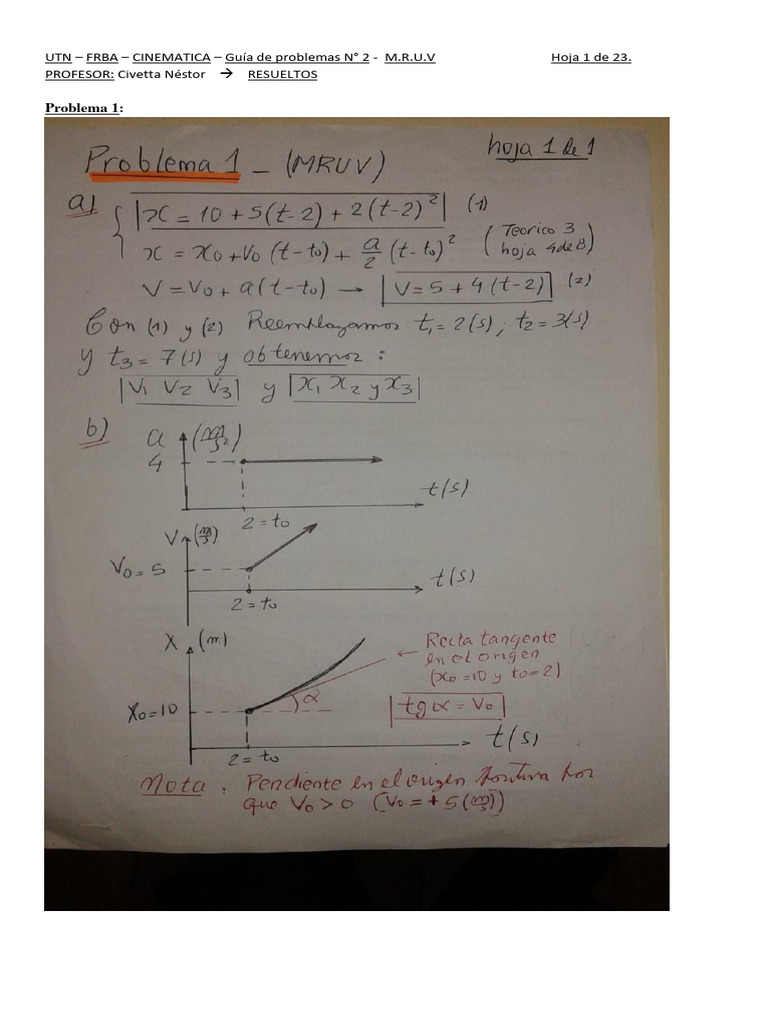 UTN – FRBA – CINEMATICA – Guía de problemas N° 2 - M.R.U.V Hoja 1 de 23.
PROFESOR: Civetta Néstor → RESUELTOS
Problema 1:
Problema 1 - (MRUV) hoja 1 de 1
a) x = 10 + 5(t-2) + 2(t-2)² (1)
x = x₀ + V₀ (t-t₀) + a/2 (t-t₀)² (Teorico 3 hoja 4 de 8)
V = V₀ + a(t-t₀) → V = 5 + 4(t-2) (2)
Con (1) y (2) Reemplazamos t₁ = 2(s); t₂ = 3(s)
y t₃ = 7(s) y obtenemos:
|V₁ V₂ V₃| y |x₁ x₂ y x₃|
b) a (m/s²)
4
t(s)
2 = t₀
V (m/s)
V₀ = 5
t(s)
2 = t₀
X (m)
Recta tangente
en el origen
(x₀ = 10 y t₀ = 2)
α
X₀ = 10
tg α = V₀
t(s)
2 = t₀
Nota: Pendiente en el origen positiva por
que V₀ > 0 (V₀ = + 5 (m/s))